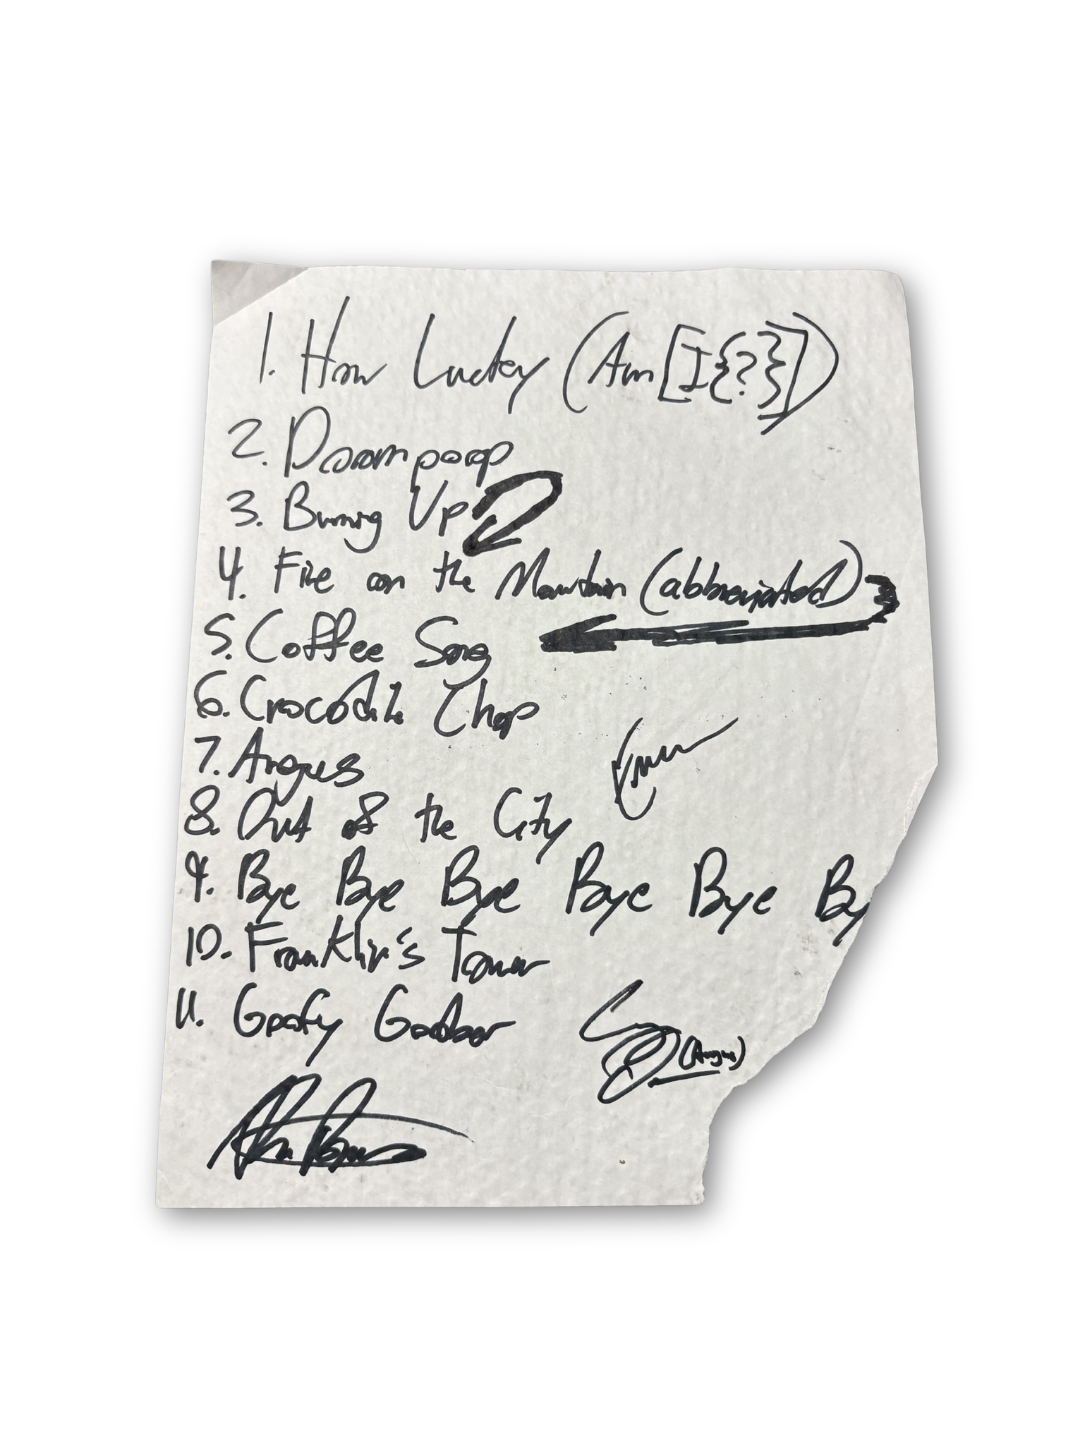 1. How Lucky (Am [I{?}])
2. Doompoop
3. Burning Up
4. Fire on the Mountain (abbreviated)
5. Coffee Song
6. Crocodile Chop
7. Angus
8. Out of the City
9. Bye Bye Bye Bye Bye By
10. Franklin's Tower
11. Goofy Goober
(Angus)